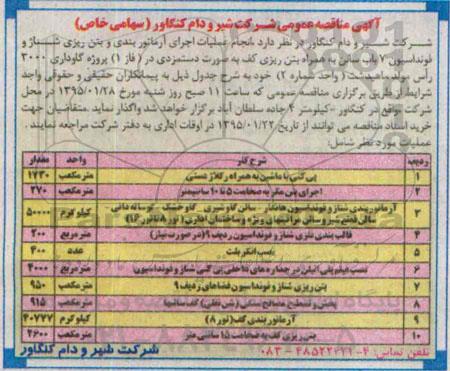 آگهی مناقصه عمومی شرکت شیر و دام کنگاور (سهامی خاص)
شرکت شیر و دام کنگاور در نظر دارد انجام عملیات اجرای آرماتور بندی و بتن ریزی شناژ و
فونداسیون ۷ باب سالن به همراه بتن ریزی کف به صورت دستمزدی در (فاز ۱) پروژه گاوداری ۳۰۰۰
رأس مولد ماهیدشت (واحد شماره ۲) خود به شرح جدول ذیل به پیمانکاران حقیقی و حقوقی واجد
شرایط از طریق برگزاری مناقصه عمومی که ساعت ۱۱ صبح روز شنبه مورخ ۱۳۹۵/۰۱/۲۸ در محل
شرکت واقع در کنگاور - کیلومتر ۴ جاده سلطان آباد برگزار خواهد شد واگذار نماید. متقاضیان جهت
خرید اسناد مناقصه می توانند از تاریخ ۱۳۹۵/۰۱/۲۲ در اوقات اداری به دفتر شرکت مراجعه نمایند.
عملیات مورد نظر شامل:
ردیف شرح کار واحد مقدار
۱ پی کنی با ماشین به همراه رگلاژ دستی مترمکعب ۱۷۳۰
۲ اجرای بتن مگر به ضخامت ۵ تا ۱۰ سانتیمتر مترمکعب ۲۷۰
۳ آرماتور بندی شناژ و فونداسیون بهاربند - سالن گاو شیری - گاو خشک - گوساله دانی
سالن و ساختمان اداری (نور ۸ تا نور ۱۶) کیلو گرم ۵۰۰۰۰
۴ قالب بندی فلزی شناژ و فونداسیون ردیف ۹ (در صورت نیاز) مترمربع ۲۰۰
۵ نصب انکر پلیت عدد ۴۰۰
۶ نصب فیلم پلی اتیلن در جداره های داخلی پی کنی شناژ و فونداسیون مترمربع ۴۰۰۰
۷ بتن ریزی شناژ و فونداسیون فضاهای ردیف ۹ مترمکعب ۹۵۰
۸ پخش و تسطیح مصالح سنگی (شن نقلی) کف سالنها مترمکعب ۹۱۵
۹ آرماتور بندی کف (نور ۸) کیلو گرم ۴۰۷۷۷
۱۰ بتن ریزی کف به ضخامت ۱۵ سانتی متر مترمکعب ۲۶۰۰
تلفن تماس: ۴-۴۸۵۲۲۲۷۱-۰۸۳ شرکت شیر و دام کنگاور